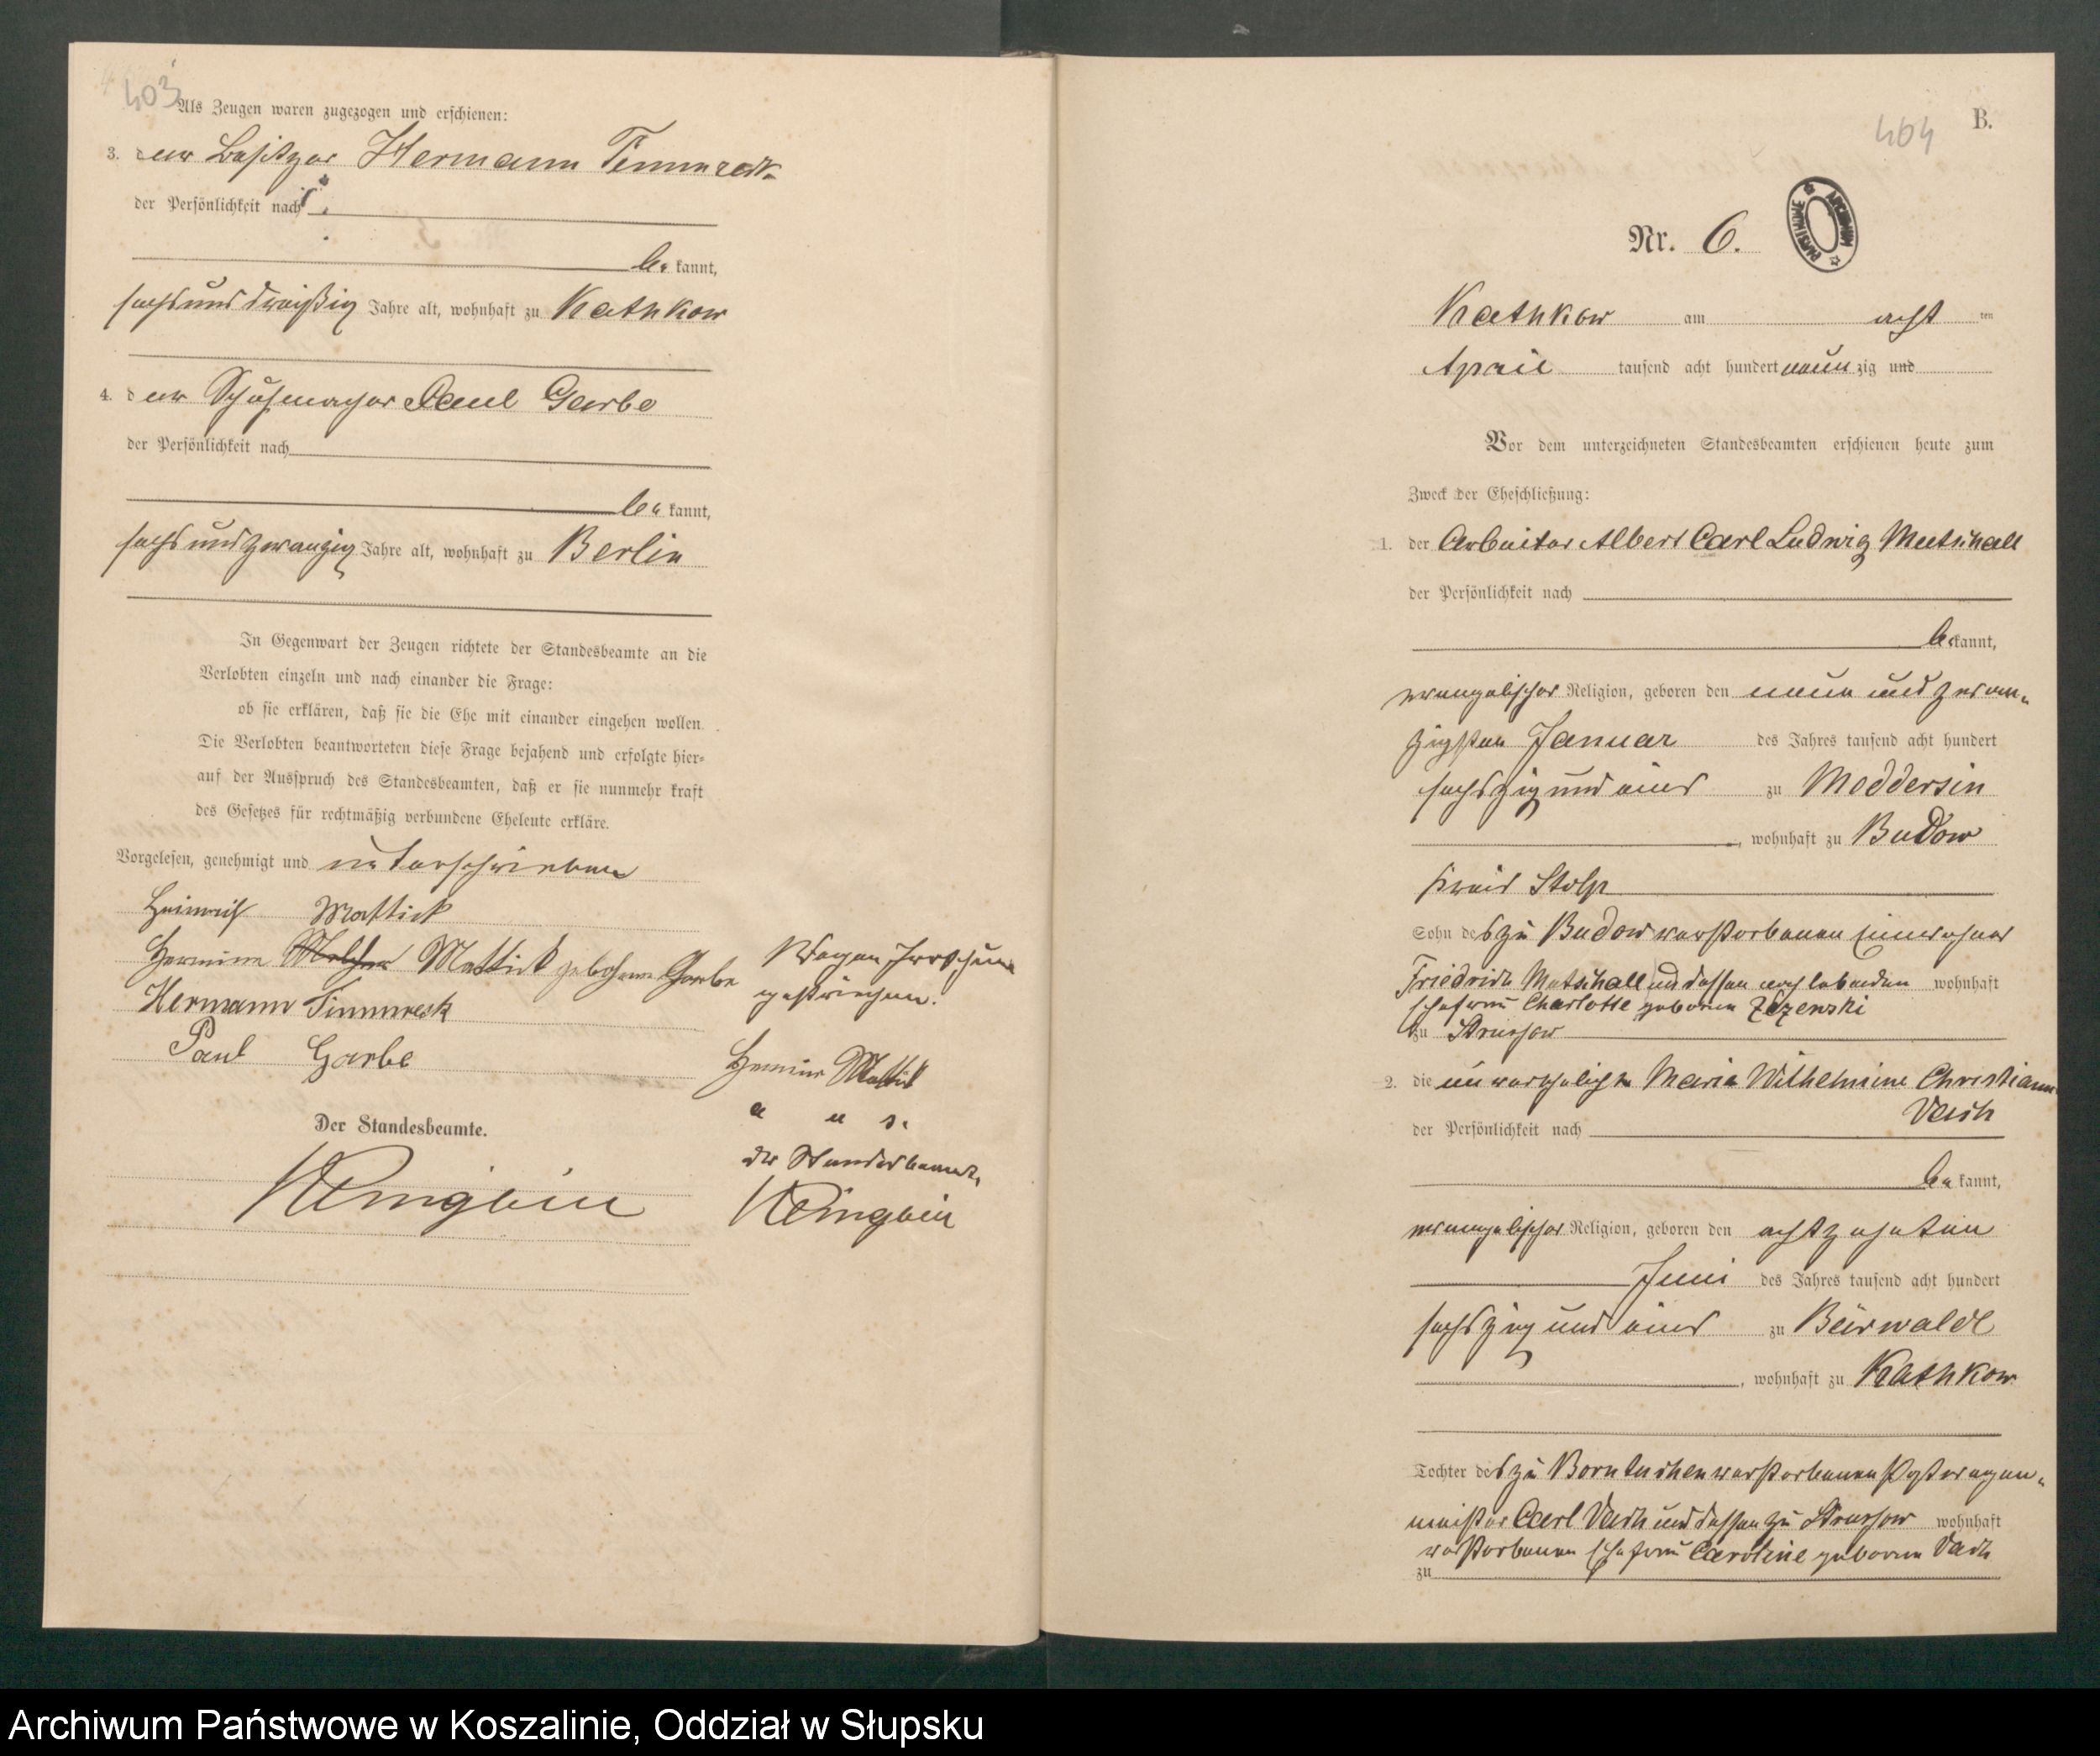 403
Als Zeugen waren zugezogen und erschienen:
3. der Besitzer Hermann Timmreck
der Persönlichkeit nach
be kannt,
sechsunddreißig Jahre alt, wohnhaft zu Kathkow
4. der Schuhmacher Paul Garbe
der Persönlichkeit nach
be kannt,
sechsundzwanzig Jahre alt, wohnhaft zu Berlin
In Gegenwart der Zeugen richtete der Standesbeamte an die
Verlobten einzeln und nach einander die Frage:
ob sie erklären, daß sie die Ehe mit einander eingehen wollen.
Die Verlobten beantworteten diese Frage bejahend und erfolgte hier=
auf der Ausspruch des Standesbeamten, daß er sie nunmehr kraft
des Gesetzes für rechtmäßig verbundene Eheleute erkläre.
Vorgelesen, genehmigt und unterschrieben
Heinrich Mattick
Hermine Mattick geborene Garbe
Hermann Timmreck
Paul Garbe
Wegen
gestrichen.
Hermine Mattick
Der Standesbeamte.
der Standesbeamte
404
B.
Nr. 6.
ARCHIWUM PAŃSTWOWE
Kathkow am acht ten
April tausend acht hundert neun zig und
Vor dem unterzeichneten Standesbeamten erschienen heute zum
Zweck der Eheschließung:
1. der Arbeiter Albert Carl Ludwig Mutschall
der Persönlichkeit nach
be kannt,
evangelischer Religion, geboren den neun und zwan=
zigsten Januar des Jahres tausend acht hundert
sechszig und eins zu Moddersin
, wohnhaft zu Budow
Kreis Stolp
Sohn des zu Budow verstorbenen Einwohner
Friedrich Mutschall und dessen noch lebenden wohnhaft
Ehefrau Charlotte geborene
zu Strussow
2. die unverehelichte Maria Wilhelmine Christiane
Vach
der Persönlichkeit nach
be kannt,
evangelischer Religion, geboren den achtzehnten
Juni des Jahres tausend acht hundert
sechszig und eins zu Bärwalde
, wohnhaft zu Kathkow
Tochter des zu Borntuchen verstorbenen
meister Carl Vach und dessen zu Strussow wohnhaft
verstorbenen Ehefrau Caroline geborene Vach
zu
Archiwum Państwowe w Koszalinie, Oddział w Słupsku